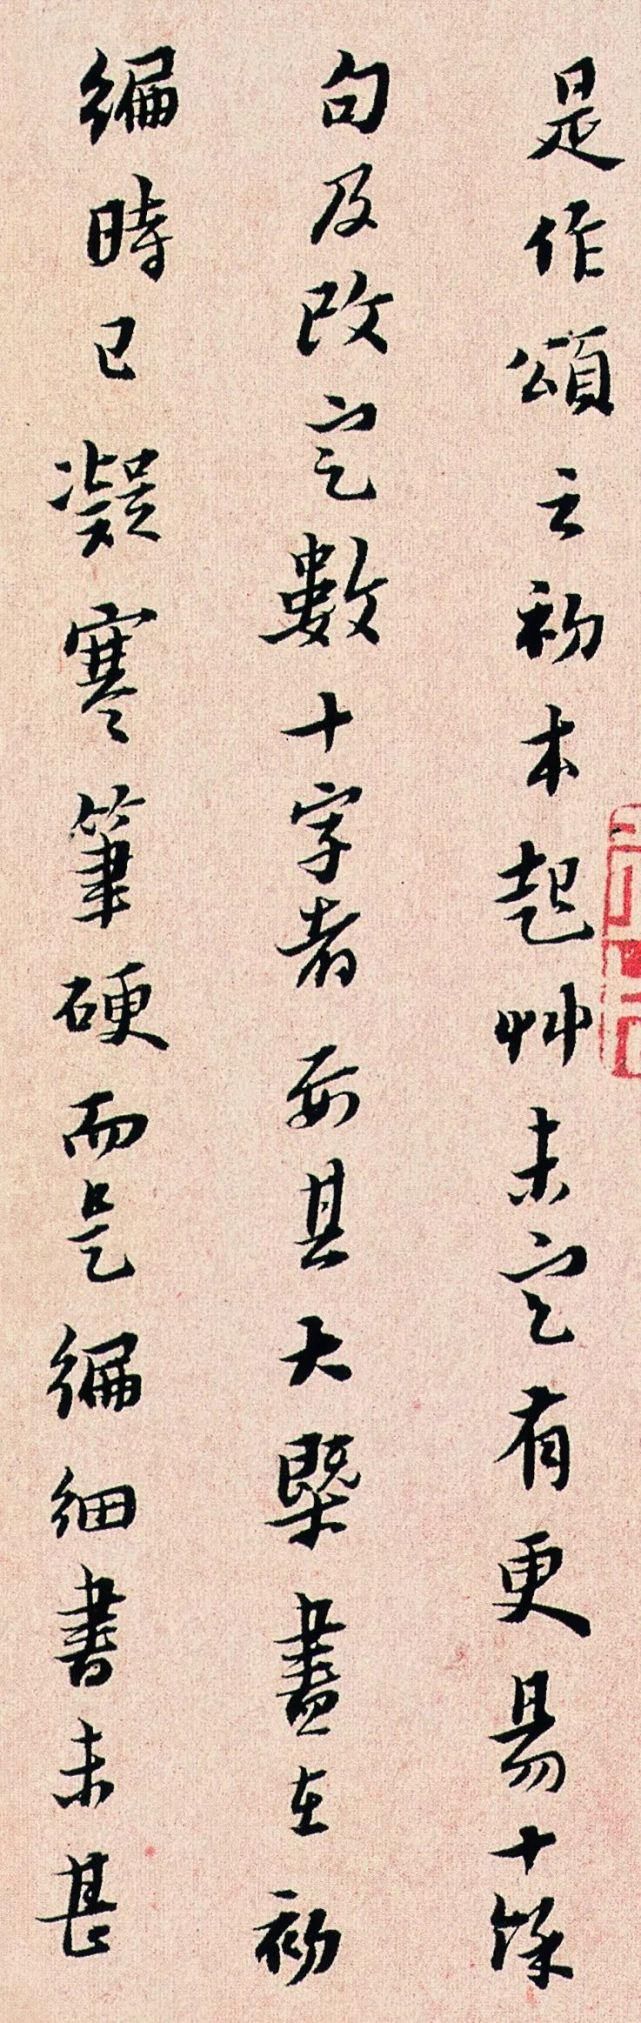 是作頌云初本起艸未定有更易十餘
句及改定數十字者要其大槩盡在初
編時已凝寒筆硬而是編細書未甚